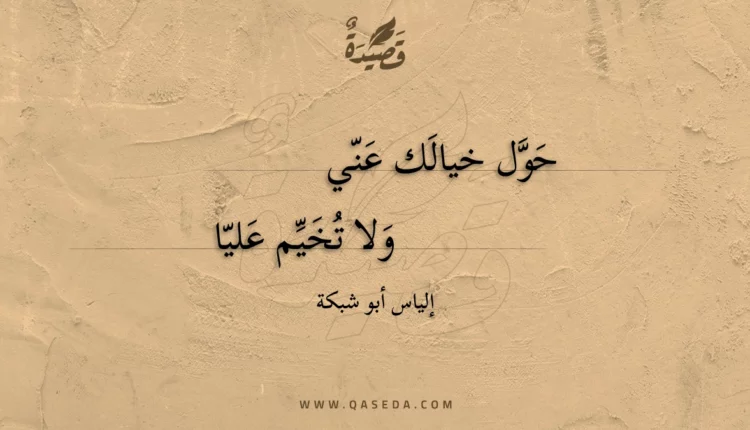 قَصِيْدَةٌ
حَوَّل خيالَك عَنّي
وَلا تُخَيِّم عَليّا
إلياس أبو شبكة
WWW.QASEDA.COM